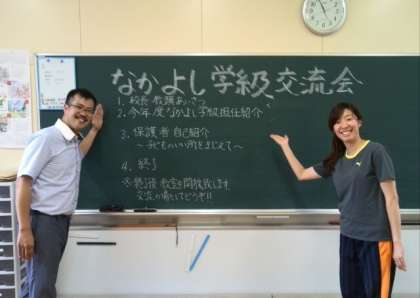 なかよし学級交流会
1. 校長 教頭あいさつ
2. 今年度なかよし学級担任紹介
3. 保護者自己紹介
～子どものいい所をまじえて～
4. 終了
※終了後 教室を開放致します
交流の場としてどうぞ!!